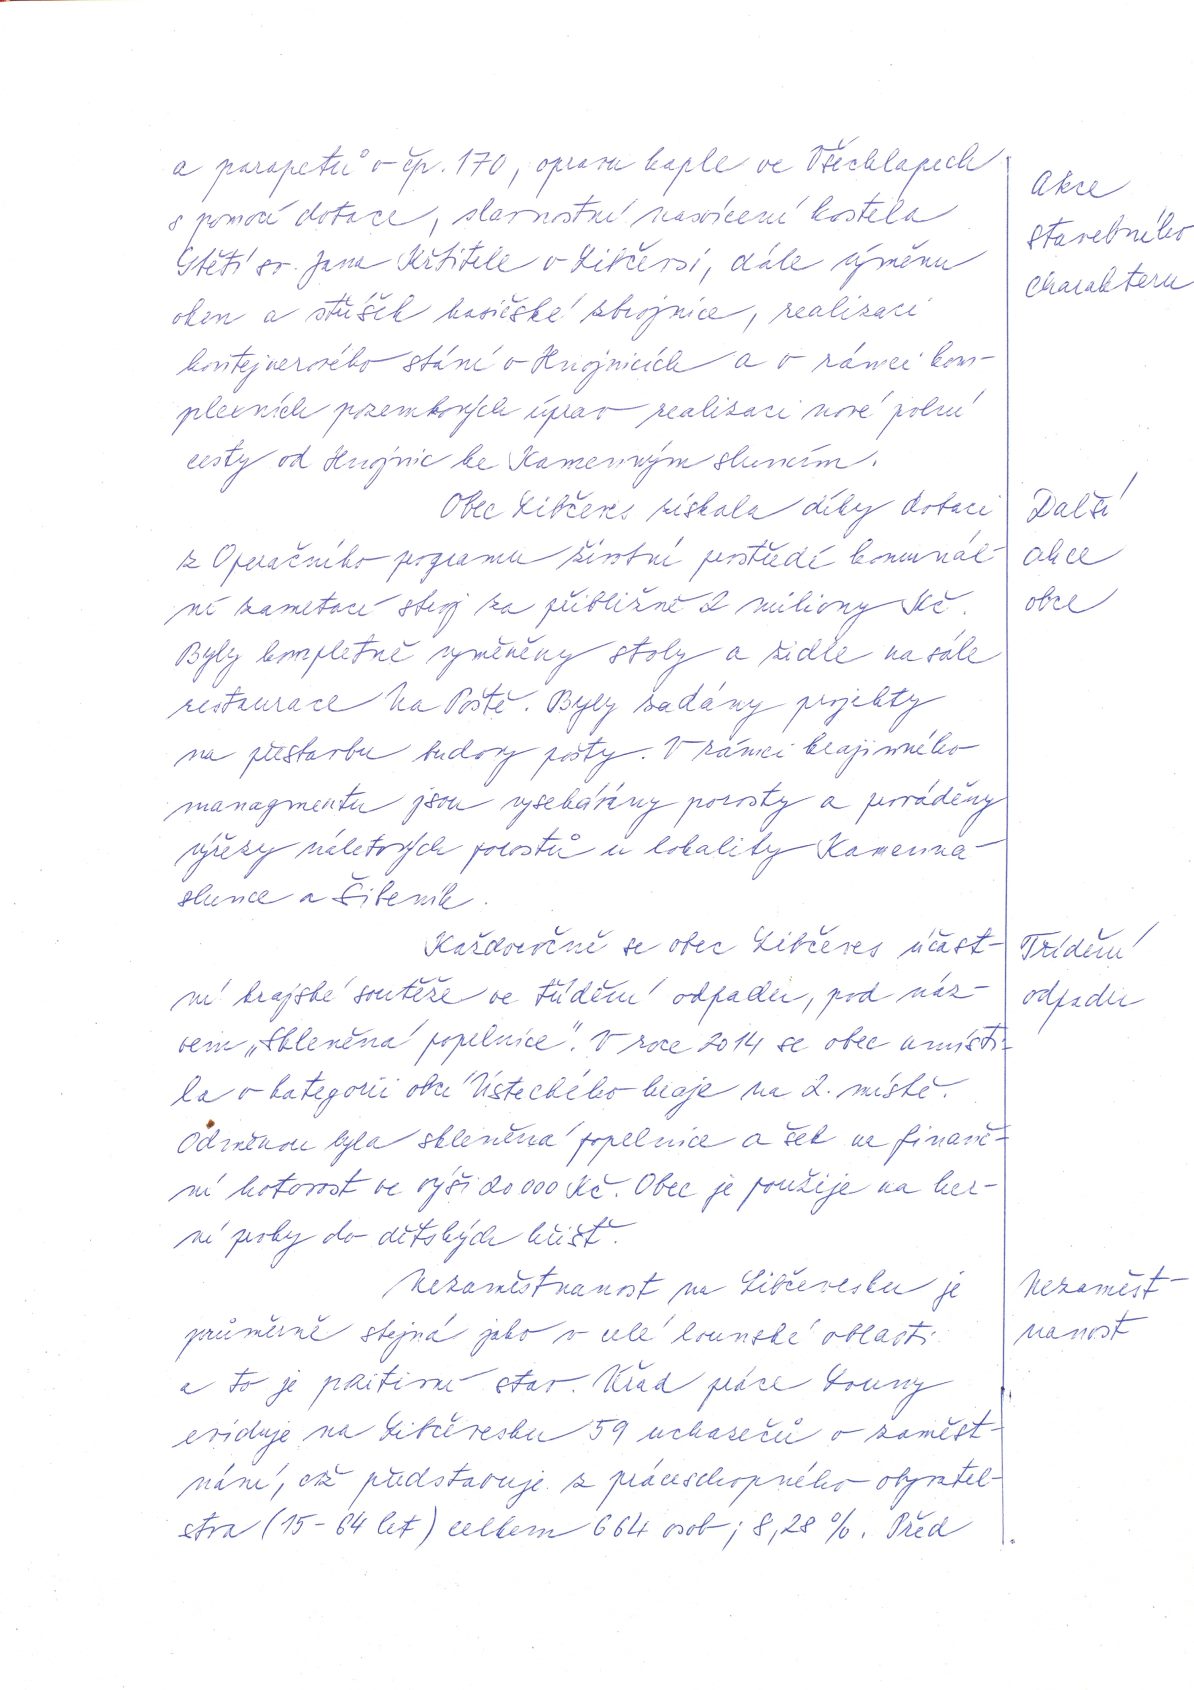 a parapetů v čp. 170, opravu kaple ve Všechlapech
s pomocí dotace, slavnostní nasvícení kostela
Stětí sv. Jana Křtitele v Libčevsi, dále výměnu
oken a stříšek hasičské zbrojnice, realizaci
kontejnerového stání v Hnojnicích a v rámci kom-
plexních pozemkových úprav realizaci nové polní
cesty od Hnojnic ke Kamenným sluncím.
Akce
stavebního
charakteru
Obec Libčeves získala díky dotaci
z Operačního programu životní prostředí komunál-
ní zametací stroj za přibližně 2 miliony Kč.
Byly kompletně vyměněny stoly a židle na sále
restaurace Na Poště. Byly zadány projekty
na přestavbu budovy pošty. V rámci krajinného
managmentu jsou vysekávány porosty a prováděny
výřezy náletových porostů u lokality Kamenná
slunce a Šibeník.
Další
akce
obce
Každoročně se obec Libčeves účast-
ní krajské soutěže ve třídění odpadu, pod náz-
vem „Skleněná popelnice". V roce 2014 se obec umísti-
la v kategorii obcí Ústeckého kraje na 2. místě.
Odměnou byla skleněná popelnice a šek na finanč-
ní hotovost ve výši 20 000 Kč. Obec je použije na her-
ní prvky do dětských hřišť.
Třídění
odpadu
Nezaměstnanost na Libčevesku je
průměrně stejná jako v celé lounské oblasti
a to je pozitivní stav. Úřad práce Louny
eviduje na Libčevesku 59 uchazečů o zaměst-
nání, což představuje z práceschopného obyvatel-
stva (15-64 let) celkem 664 osob; 8,28 %. Před
Nezaměst-
nanost